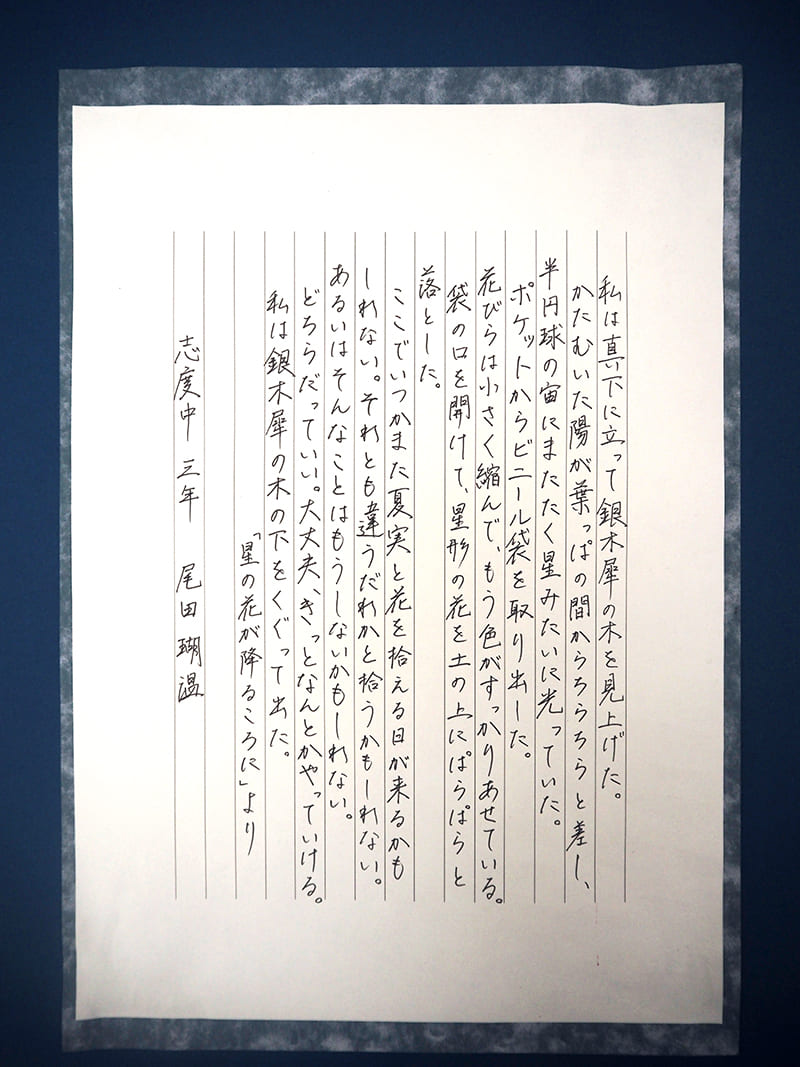 私は真下に立って銀木犀の木を見上げた。
かたむいた陽が葉っぱの間からちらちらと差し、
半円球の宙にまたたく星みたいに光っていた。
ポケットからビニール袋を取り出した。
花びらは小さく縮んで、もう色がすっかりあせている。
袋の口を開けて、星形の花を土の上にぱらぱらと
落とした。
ここでいつかまた夏実と花を拾える日が来るかも
しれない。それとも違うだれかと拾うかもしれない。
あるいはそんなことはもうしないかもしれない。
どちらだっていい。大丈夫、きっとなんとかやっていける。
私は銀木犀の木の下をくぐって出た。
「星の花が降るころに」より
志度中 三年 尾田 瑚温